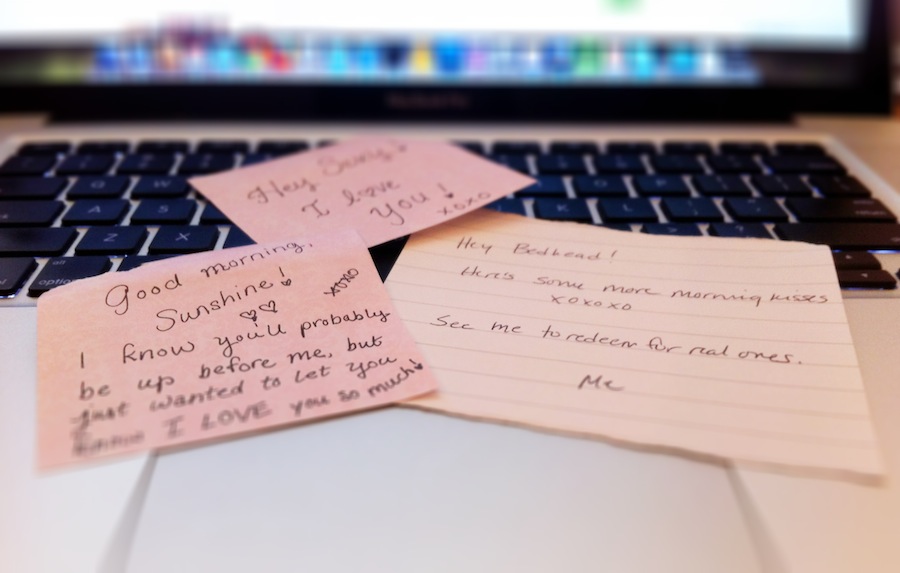 I love
You!
xoxo
Good morning,
Sunshine!
xoxo
I know you'll probably
be up before me, but
just wanted to let you
I LOVE you so much
Hey Bedhead!
Here's some more morning kisses
xoxoxo
See me to redeem for real ones.
Me
A
S
Z
X
alt
option
K
L